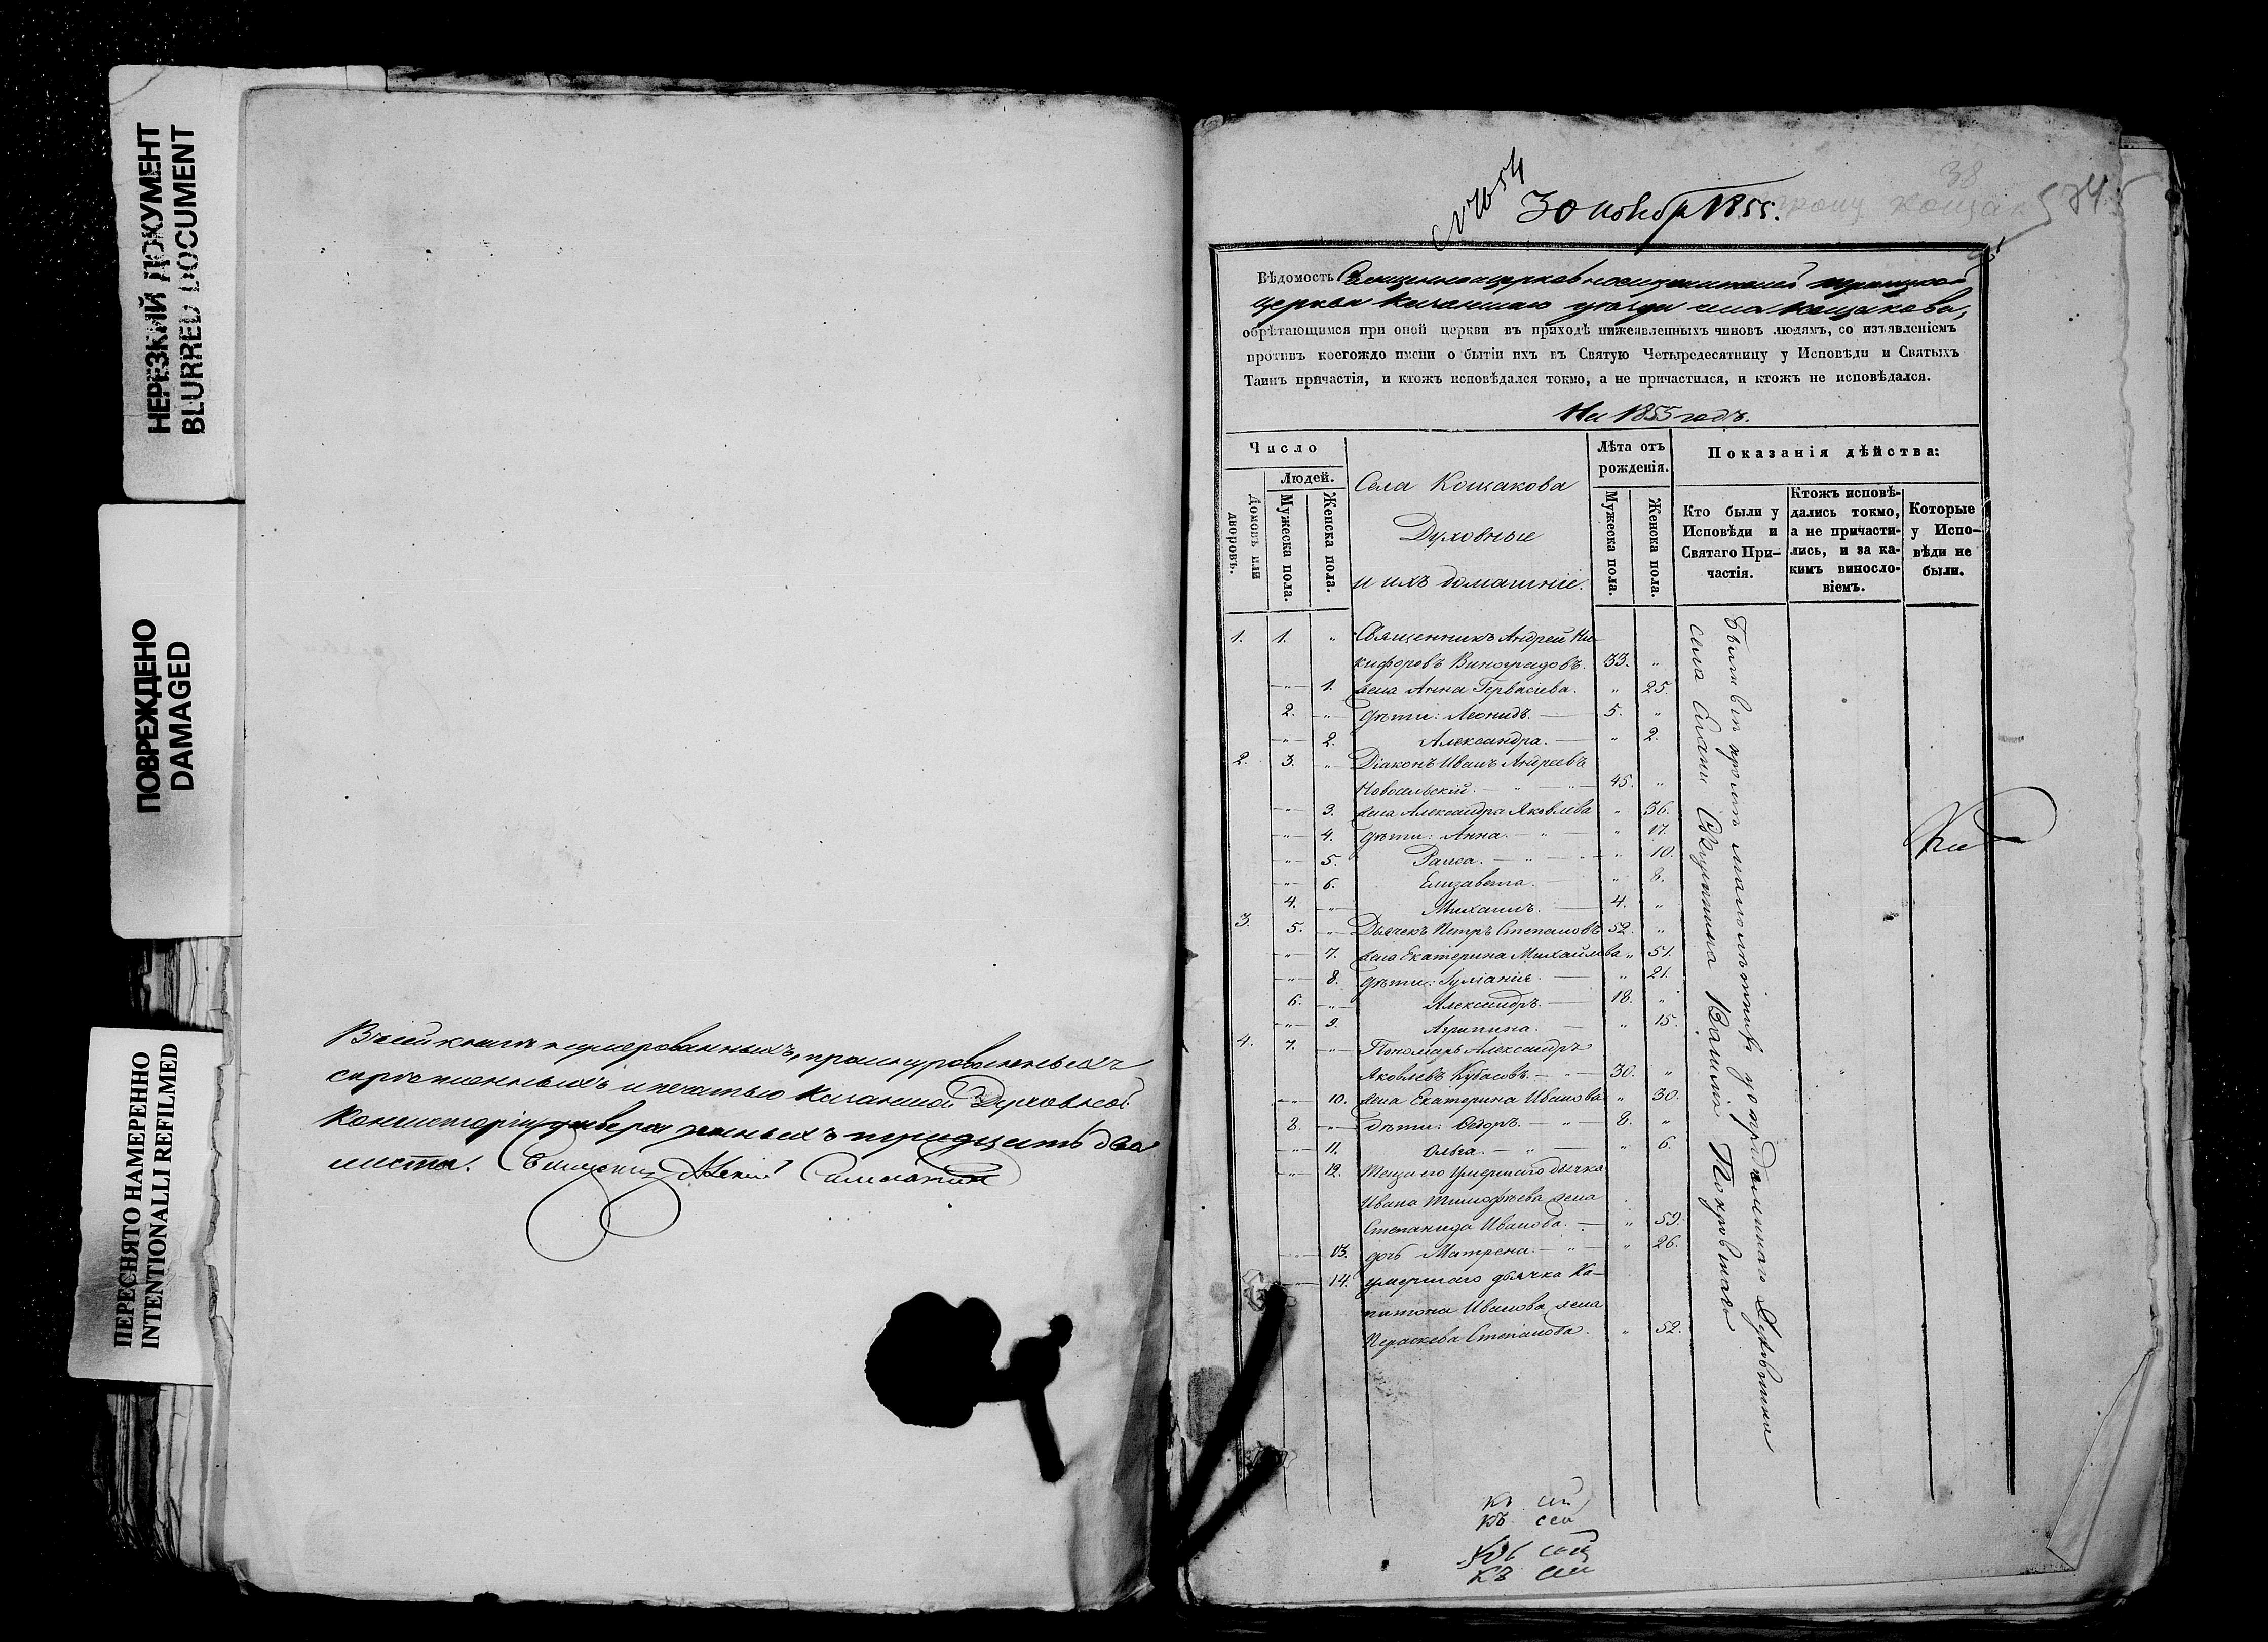 НЕРЕЗКИЙ ДОКУМЕНТ
BLURRED DOCUMENT
ПОВРЕЖДЕНО
DAMAGED
ПЕРЕСНЯТО НАМЕРЕННО
INTENTIONALLI REFILMED
В сей книге нумерованныхъ, прошнурованныхъ
скрепленныхъ и печатью Казанской Духовной
Консисторіи утвержденныхъ тридцать два
листа.
30 Ноября 1855.
38
Вѣдомость Священноцерковнослужителей Троицкой
церкви Казанскаго уѣзда села Кощакова,
обрѣтающимся при оной церкви въ приходѣ нижеявленныхъ чиновъ людямъ, со изъявленіемъ
противъ коегождо имени о бытіи ихъ въ Святую Четыредесятницу у Исповѣди и Святыхъ
Таинъ причастія, и ктожъ исповѣдался токмо, а не причастился, и ктожъ не исповѣдался.
На 1855 годъ.
Число
Людей.
Домовъ или дворовъ.
Мужеска пола.
Женска пола.
Села Кощакова
Духовные
и ихъ домашніе.
Лѣта отъ рожденія.
Мужеска пола.
Женска пола.
Показанія дѣйства:
Кто были у Исповѣди и Святаго При-частія.
Ктожъ исповѣ-дались токмо, а не причасти-лись, и за ка-кимъ винословіемъ.
Которые у Испо-вѣди не были.
1. 1. " Священникъ Андрей Ни-
кифоровъ Виноградовъ. 33. "
" 1. жена Анна Гервасіева. " 25.
2. " дѣти: Леонидъ. 5. "
" 2. Александра. " 2.
2. 3. " Діаконъ Иванъ Андреевъ
Новосельскій. 45. "
" 3. жена Александра Яковлева " 36.
" 4. дѣти: Анна. " 17.
" 5. Раиса. " 10.
" 6. Елизавета. " 8.
4. " Михаилъ. 4. "
3. 5. " Дьячекъ Петръ Степановъ 52. "
" 7. жена Екатерина Михайлова " 51.
" 8. дѣти: Іуліанія. " 21.
6. " Александръ. 18. "
" 9. Агрипина. " 15.
4. 7. " Пономарь Александръ
Яковлевъ Кубасовъ. 30. "
" 10. жена Екатерина Иванова " 30.
8. " дѣти: Ѳедоръ. 8. "
" 11. Ольга. " 6.
" 12. Теща его умершаго дьячка
Ивана Тимофѣева жена
Степанида Иванова. " 59.
" 13. дочь Матрена. " 26.
" 14. умершаго дьячка Ка-
питона Иванова жена
Параскева Степанова. " 52.
Были кромѣ малолѣтнихъ у опредѣленнаго Духовника
села Василія Покровскаго